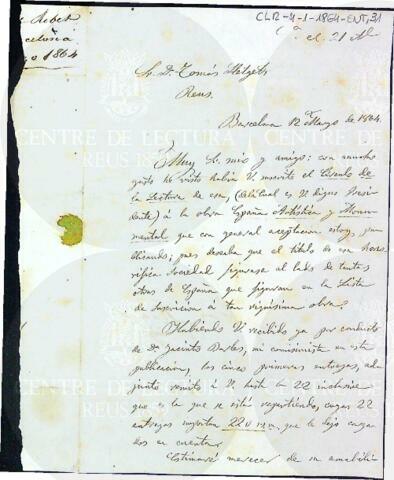 CLR-4-1-1864-ENT,31
Ribet
1864
Sr. Dn. Tomás
Reus.
Barcelona 12 Marzo de 1864.
Muy Sr. mio y amigo: con mucho
gusto he visto habia V. inscrito el Circulo de
la Lectura de esa, (del cual es V. digno Presi-
dente) á la obra España Artística y Monu-
mental que con general aceptacion estoy pu-
blicando; pues deseaba que el titulo de esa
Sociedad figurase al lado de tantas
otras de España que figuran en la Lista
de Suscricion á tan obra.
Habiendo V. recibido ya por conducto
de Dn. Jacinto mi comisionista en esta
publicacion, las cinco primeras entregas, ad-
junto remito á V. hasta la 22 inclusive
que es la que se está repartiendo, cuyas 22
entregas importan 220 que le dejo carga-
dos en cuenta.
Estimaré merecer de su amabili-
CENTRE DE LECTURA
REUS 1859
CENTRE DE LECTURA
REUS 1859